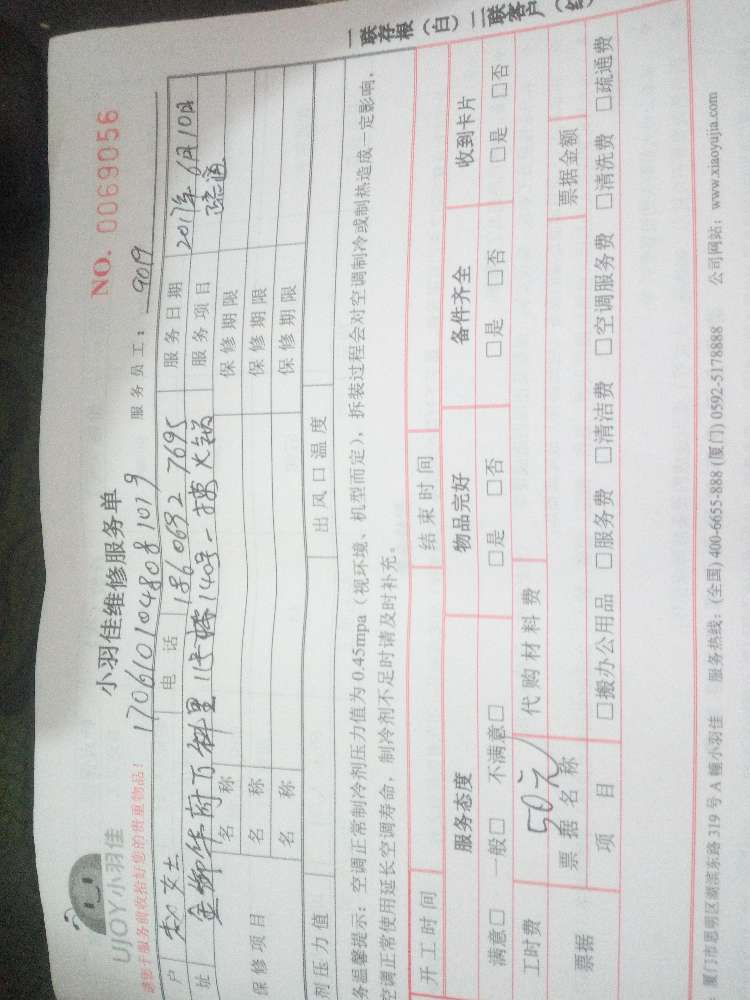 一联存根（白）二联客户（红
UJOY小羽佳
小羽佳维修服务单
NO. 0069056
请您于服务前收拾好您的贵重物品！
170610104808 1019
服务员工： 9019
户 女士 电话 186 0692 7695 服务日期 2017年6月10日
址 金榔华府万科里 140号 火锅 服务项目 疏通
保修项目 名称 保修期限
名称 保修期限
名称 保修期限
剂压力值 出风口温度
务温馨提示：空调正常制冷剂压力值为 0.45mpa（视环境、机型而定），拆装过程会对空调制冷或制热造成一定影响，
空调正常使用延长空调寿命，制冷剂不足时请及时补充。
开工时间 结束时间
服务态度 物品完好 备件齐全 收到卡片
满意□ 一般□ 不满意□ □是 □否 □是 □否 □是 □否
工时费 50元 代购材料费
票据 票据名称 票据金额
项目 □搬办公用品 □服务费 □清洁费 □空调服务费 □清洗费 □疏通费
厦门市思明区湖滨东路 319 号 A 幢小羽佳 服务热线：(全国) 400-6655-888 (厦门) 0592-5178888 公司网站：www.xiaoyujia.com